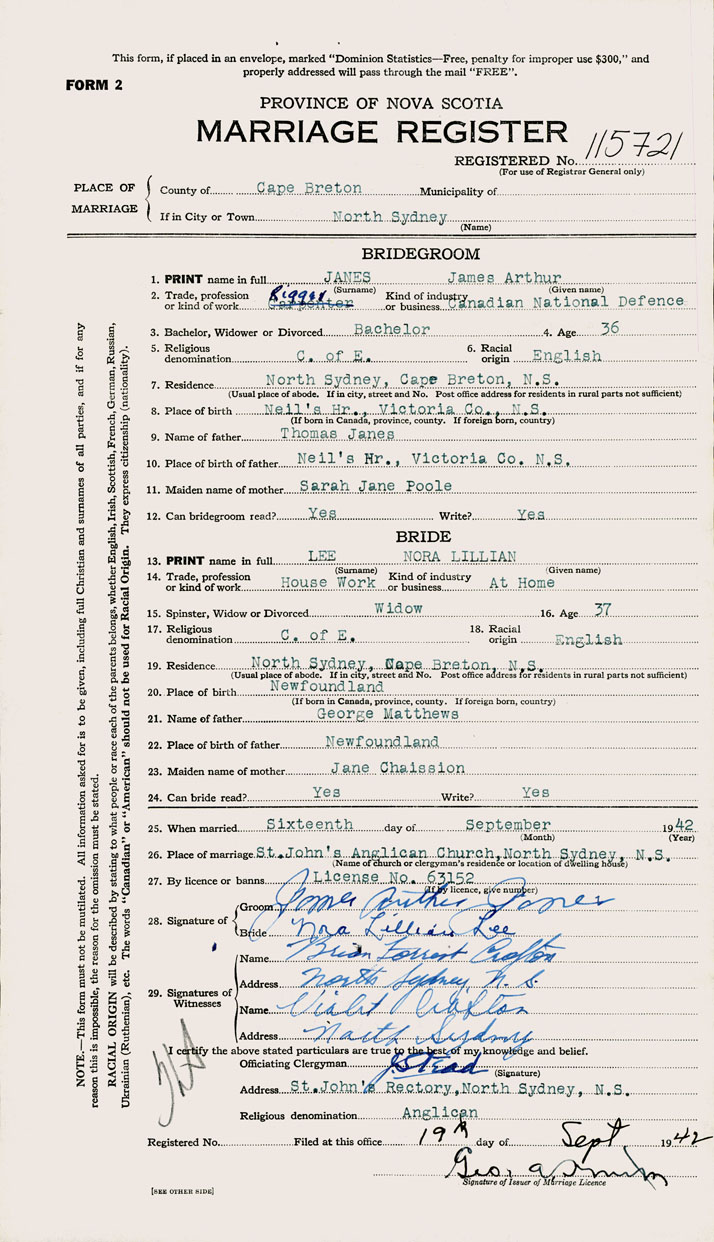 This form, if placed in an envelope, marked "Dominion Statistics—Free, penalty for improper use $300," and
properly addressed will pass through the mail "FREE".
FORM 2
PROVINCE OF NOVA SCOTIA
MARRIAGE REGISTER
REGISTERED No. 115721
(For use of Registrar General only)
PLACE OF MARRIAGE
County of Cape Breton Municipality of
If in City or Town North Sydney
(Name)
BRIDEGROOM
1. PRINT name in full JANES James Arthur
(Surname) (Given name)
2. Trade, profession or kind of work Rigger Carpenter Kind of industry or business Canadian National Defence
3. Bachelor, Widower or Divorced Bachelor 4. Age 36
5. Religious denomination C. of E. 6. Racial origin English
7. Residence North Sydney, Cape Breton, N.S.
(Usual place of abode. If in city, street and No. Post office address for residents in rural parts not sufficient)
8. Place of birth Neil's Hr., Victoria Co., N.S.
(If born in Canada, province, county. If foreign born, country)
9. Name of father Thomas Janes
10. Place of birth of father Neil's Hr., Victoria Co. N.S.
11. Maiden name of mother Sarah Jane Poole
12. Can bridegroom read? Yes Write? Yes
BRIDE
13. PRINT name in full LEE NORA LILLIAN
(Surname) (Given name)
14. Trade, profession or kind of work House Work Kind of industry or business At Home
15. Spinster, Widow or Divorced Widow 16. Age 37
17. Religious denomination C. of E. 18. Racial origin English
19. Residence North Sydney, Cape Breton, N.S.
(Usual place of abode. If in city, street and No. Post office address for residents in rural parts not sufficient)
20. Place of birth Newfoundland
(If born in Canada, province, county. If foreign born, country)
21. Name of father George Matthews
22. Place of birth of father Newfoundland
23. Maiden name of mother Jane Chaission
24. Can bride read? Yes Write? Yes
25. When married Sixteenth day of September 1942
(Month) (Year)
26. Place of marriage St.John's Anglican Church,North Sydney, N.S.
(Name of church or clergyman's residence or location of dwelling house)
27. By licence or banns License No. 63152
(If by licence, give number)
28. Signature of
Groom James Arthur Janes
Bride Nora Lillian Lee
29. Signatures of Witnesses
Name Brian Forrest Crofton
Address North Sydney N. S.
Name Violet Crofton
Address North Sydney
I certify the above stated particulars are true to the best of my knowledge and belief.
Officiating Clergyman J. Stead
(Signature)
Address St.John's Rectory,North Sydney, N.S.
Religious denomination Anglican
Registered No. Filed at this office 19th day of Sept 1942
Geo. A.
Signature of Issuer of Marriage Licence
[SEE OTHER SIDE]
NOTE.—This form must not be mutilated. All information asked for is to be given, including full Christian and surnames of all parties, and if for any
reason this is impossible, the reason for the omission must be stated.
RACIAL ORIGIN will be described by stating to what people or race each of the parents belongs, whether English, Irish, Scottish, French, German, Russian,
Ukrainian (Ruthenian), etc. The words "Canadian" or "American" should not be used for Racial Origin. They express citizenship (nationality).